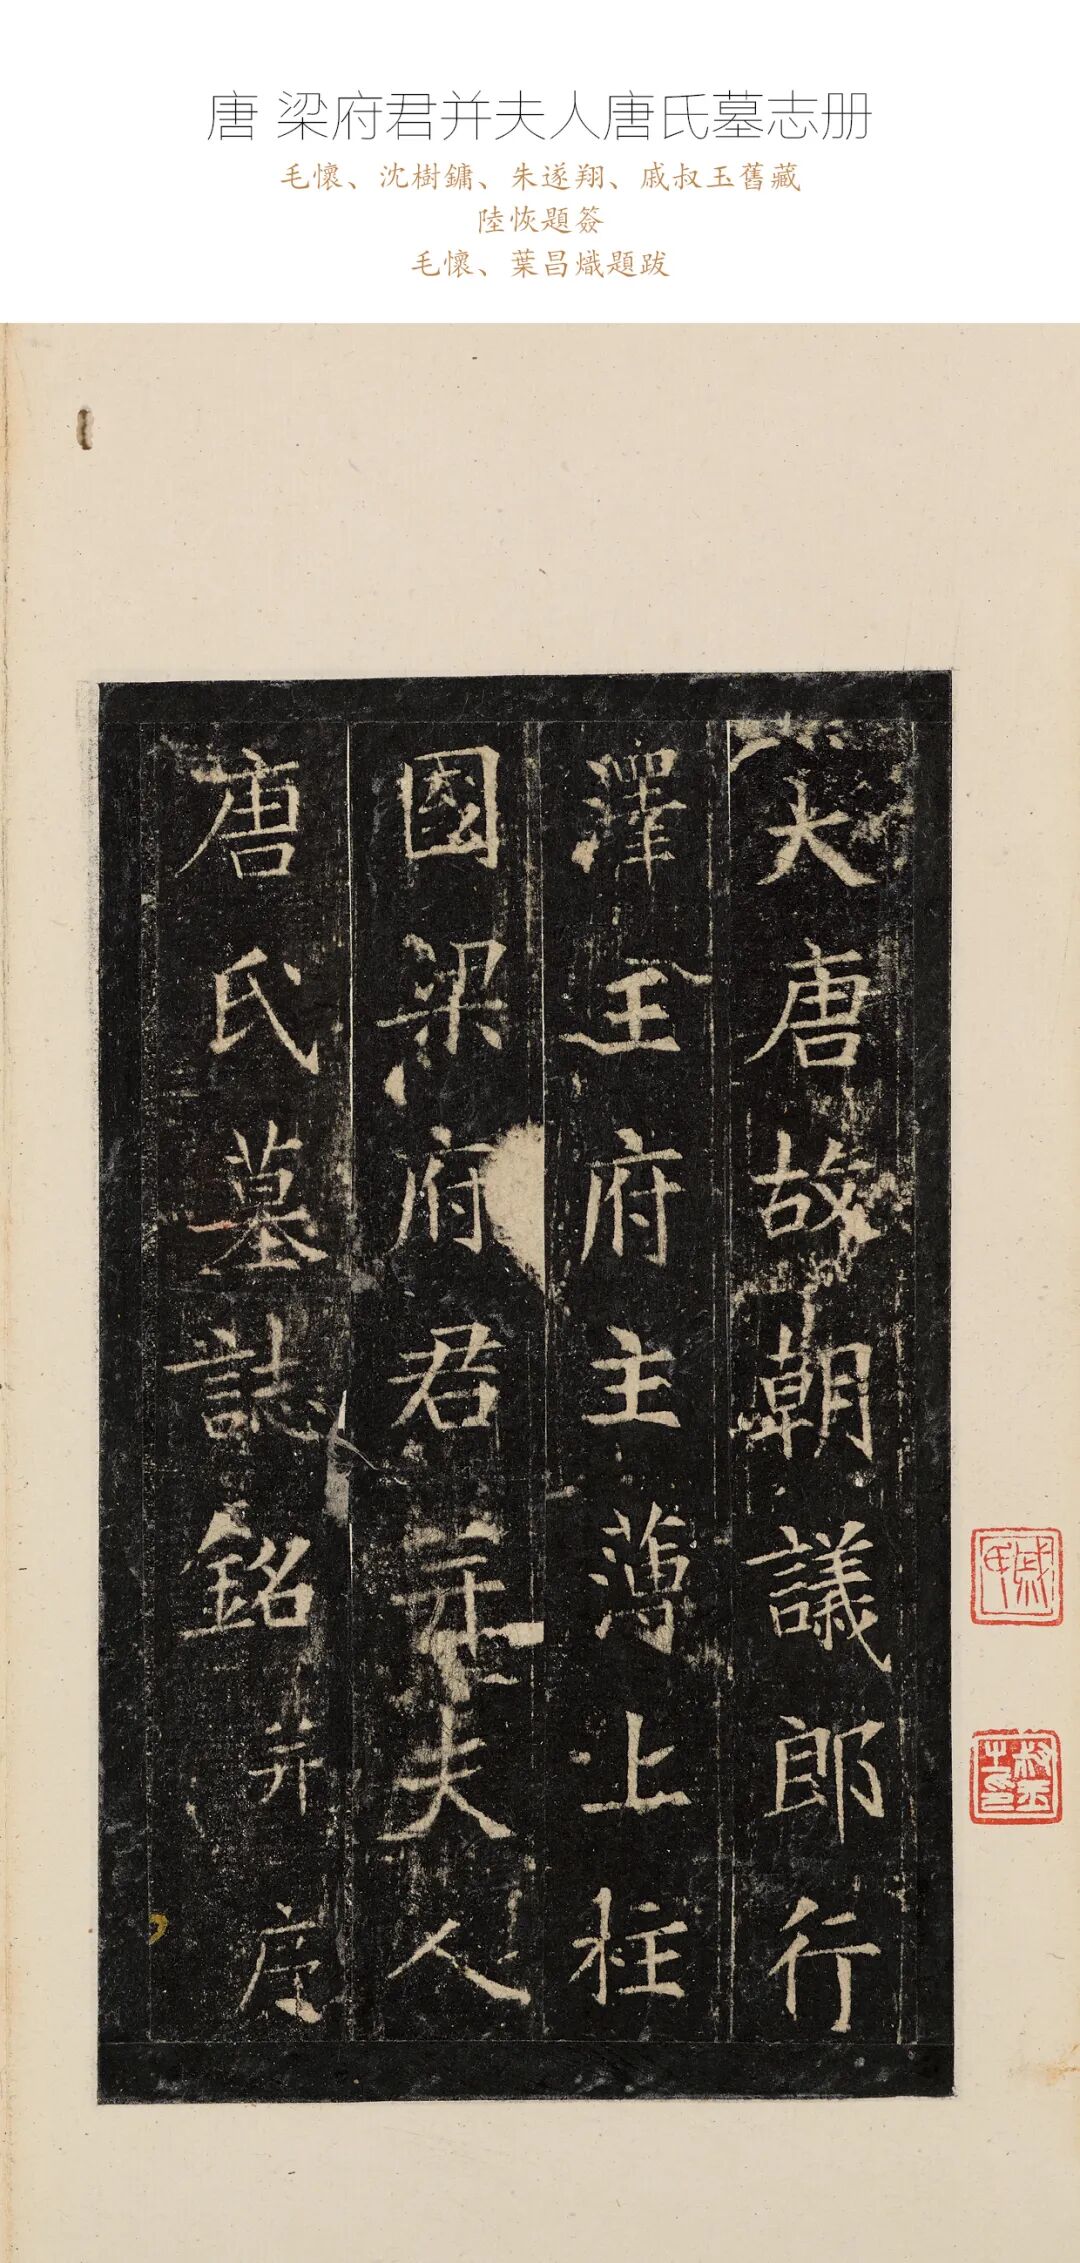 唐 梁府君并夫人唐氏墓志册
毛懷、沈樹鏞、朱遂翔、戚叔玉舊藏
陸恢題簽
毛懷、葉昌熾題跋
大唐故朝議郎行
澤王府主薄上柱
國梁府君并夫人
唐氏墓誌銘并序
戚
叔玉